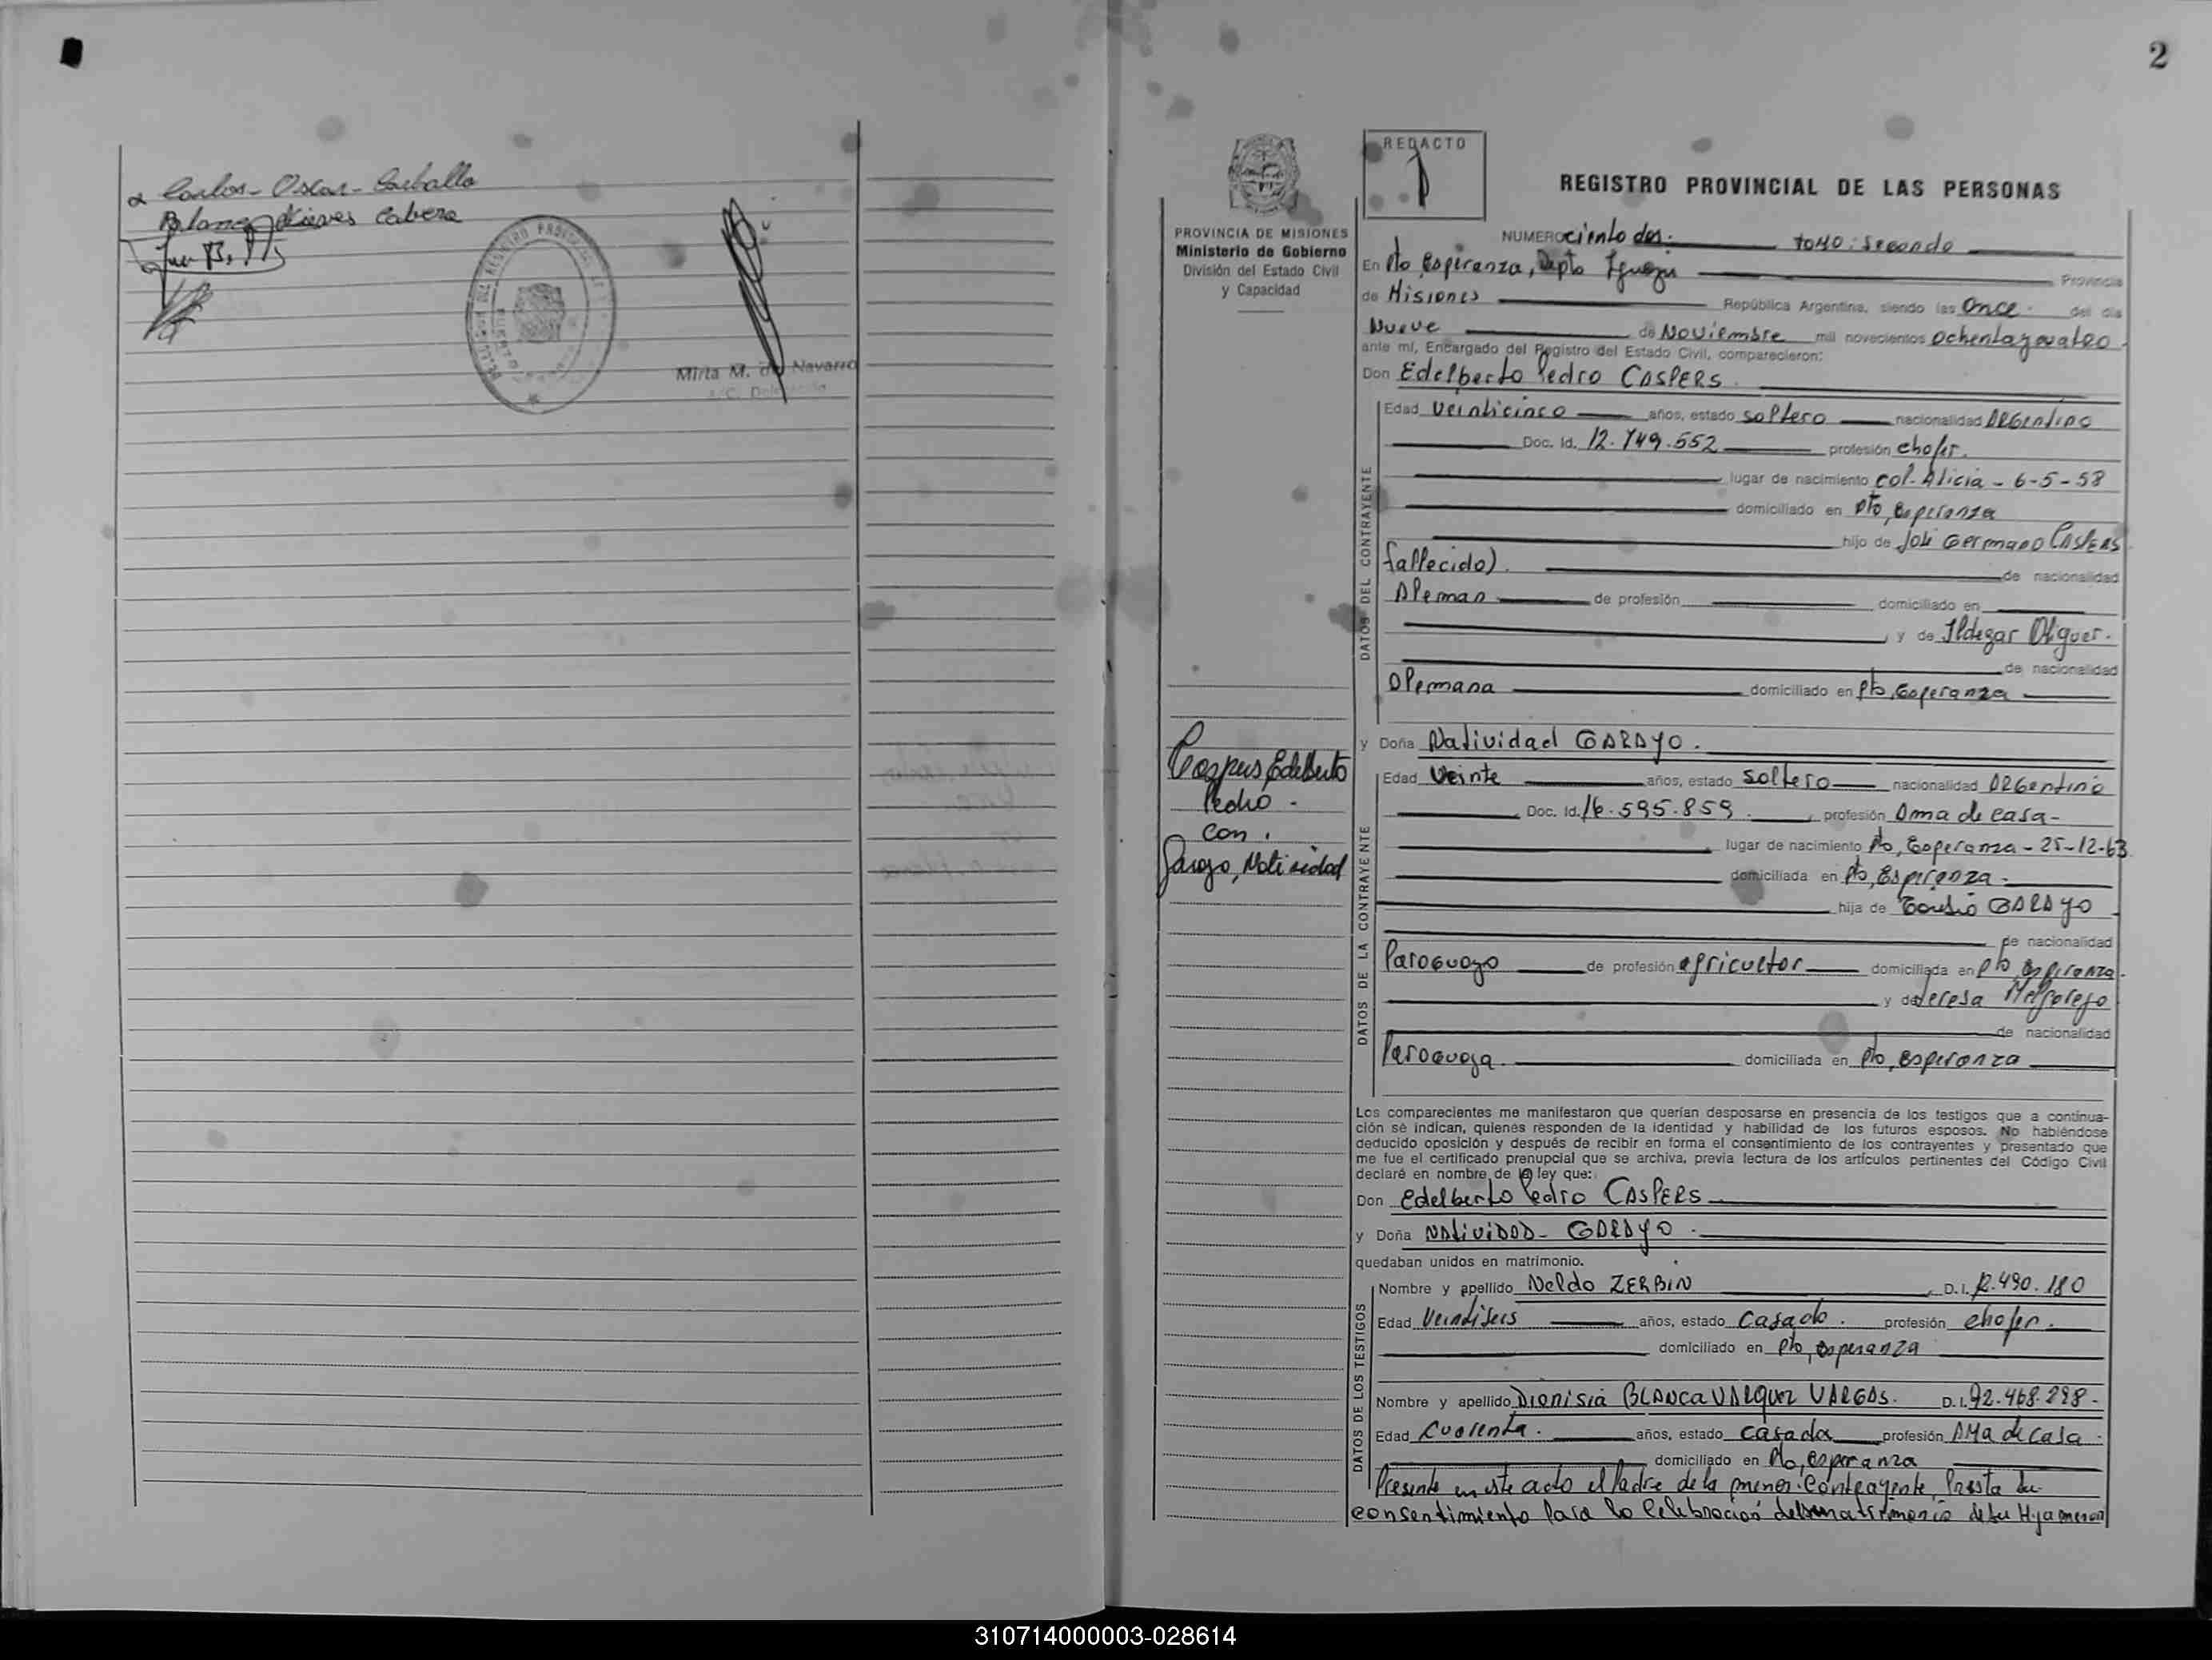 Carlos - Oscar - Carballo
Blanca Nieves Cabera
Mirta M. de Navarro
2
REDACTO
REGISTRO PROVINCIAL DE LAS PERSONAS
PROVINCIA DE MISIONES
Ministerio de Gobierno
División del Estado Civil
y Capacidad
NUMERO ciento dos. tomo: segundo
En Pto Esperanza, Depto Iguazú Provincia
de Misiones República Argentina, siendo las Once del día
Nueve de Noviembre mil novecientos ochenta y cuatro
ante mí, Encargado del Registro del Estado Civil, comparecieron:
Don Edelberto Pedro CASPERS.
DATOS DEL CONTRAYENTE
Edad Veinticinco años, estado soltero nacionalidad ARGentino
Doc. Id. 12.749.552 profesión chofer.
lugar de nacimiento col. Alicia - 6-5-58
domiciliado en Pto, Esperanza
hijo de José Germano CASPERS
fallecido). de nacionalidad
Aleman de profesión domiciliado en
y de Ildegar Oliguer.
de nacionalidad
Alemana domiciliado en Pto, Esperanza
y Doña Natividad GARAYO.
Caspers Edelberto
Pedro -
con.
Garayo, Natividad
DATOS DE LA CONTRAYENTE
Edad Veinte años, estado soltero nacionalidad ARGentino
Doc. Id. 16.595.859. profesión Ama de casa -
lugar de nacimiento Pto, Esperanza - 25-12-63
domiciliada en Pto, Esperanza.
hija de GARAYO
de nacionalidad
Paraguayo de profesión agricultor domiciliada en Pto, Esperanza.
y de Teresa Melgarejo
de nacionalidad
Paraguaya. domiciliada en Pto, Esperanza
Los comparecientes me manifestaron que querían desposarse en presencia de los testigos que a continua-
ción se indican, quienes responden de la identidad y habilidad de los futuros esposos. No habiéndose
deducido oposición y después de recibir en forma el consentimiento de los contrayentes y presentado que
me fue el certificado prenupcial que se archiva, previa lectura de los artículos pertinentes del Código Civil
declaré en nombre de la ley que:
Don Edelberto Pedro CASPERS
y Doña NATIVIDAD - GARAYO.
quedaban unidos en matrimonio.
DATOS DE LOS TESTIGOS
Nombre y apellido Neldo ZERBIN D.I. 12.490.180
Edad Veintiseis años, estado Casado. profesión chofer.
domiciliado en Pto, Esperanza
Nombre y apellido Dionisia BLANCA VARGAS. D.I. 92.468.298.
Edad Cuarenta. años, estado casada profesión AMA de casa
domiciliado en Pto, Esperanza
Presente en este acto el Padre de la menor Contrayente, Presta su
consentimiento Para la Celebracion del matrimonio de su Hija menor
310714000003-028614